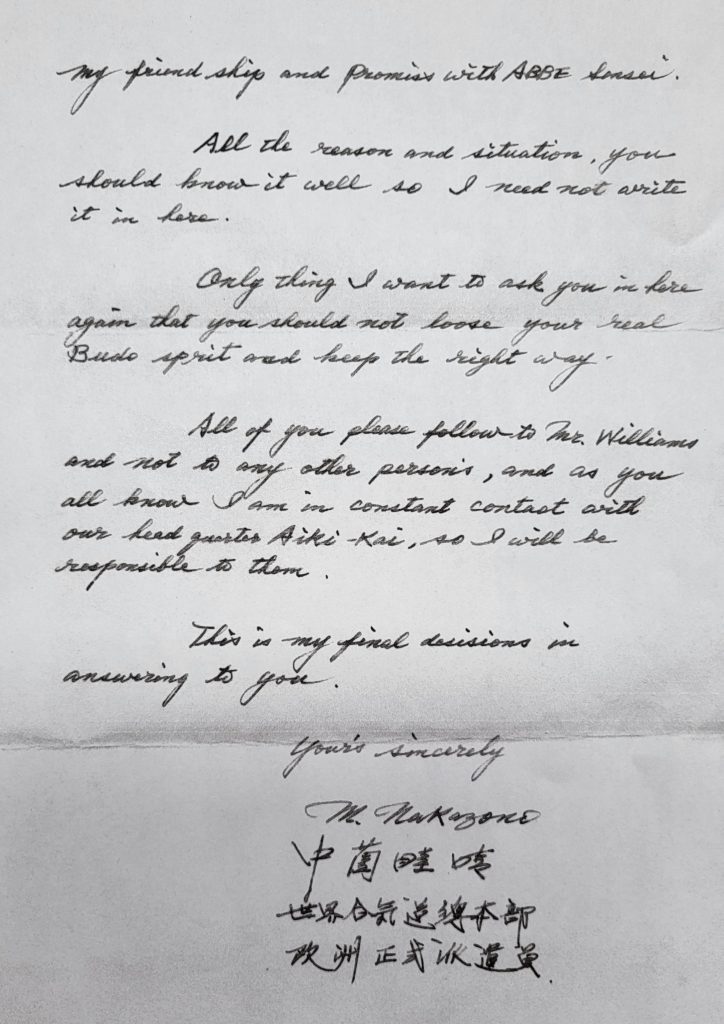 my friend ship and Promiss with ABBE Sensei.
All the reason and situation, you
should know it well so I need not write
it in here.
Only thing I want to ask you in here
again that you should not loose your real
Budo sprit and keep the right way.
All of you please follow to Mr. Williams
and not to any other person's, and as you
all know I am in constant contact with
our head quarter Aiki-Kai, so I will be
responsible to them.
This is my final desisions in
answering to you.
Your's sincerely
M. Nakazono
中薗睦
世界合気道總本部
欧洲正式派遣員.